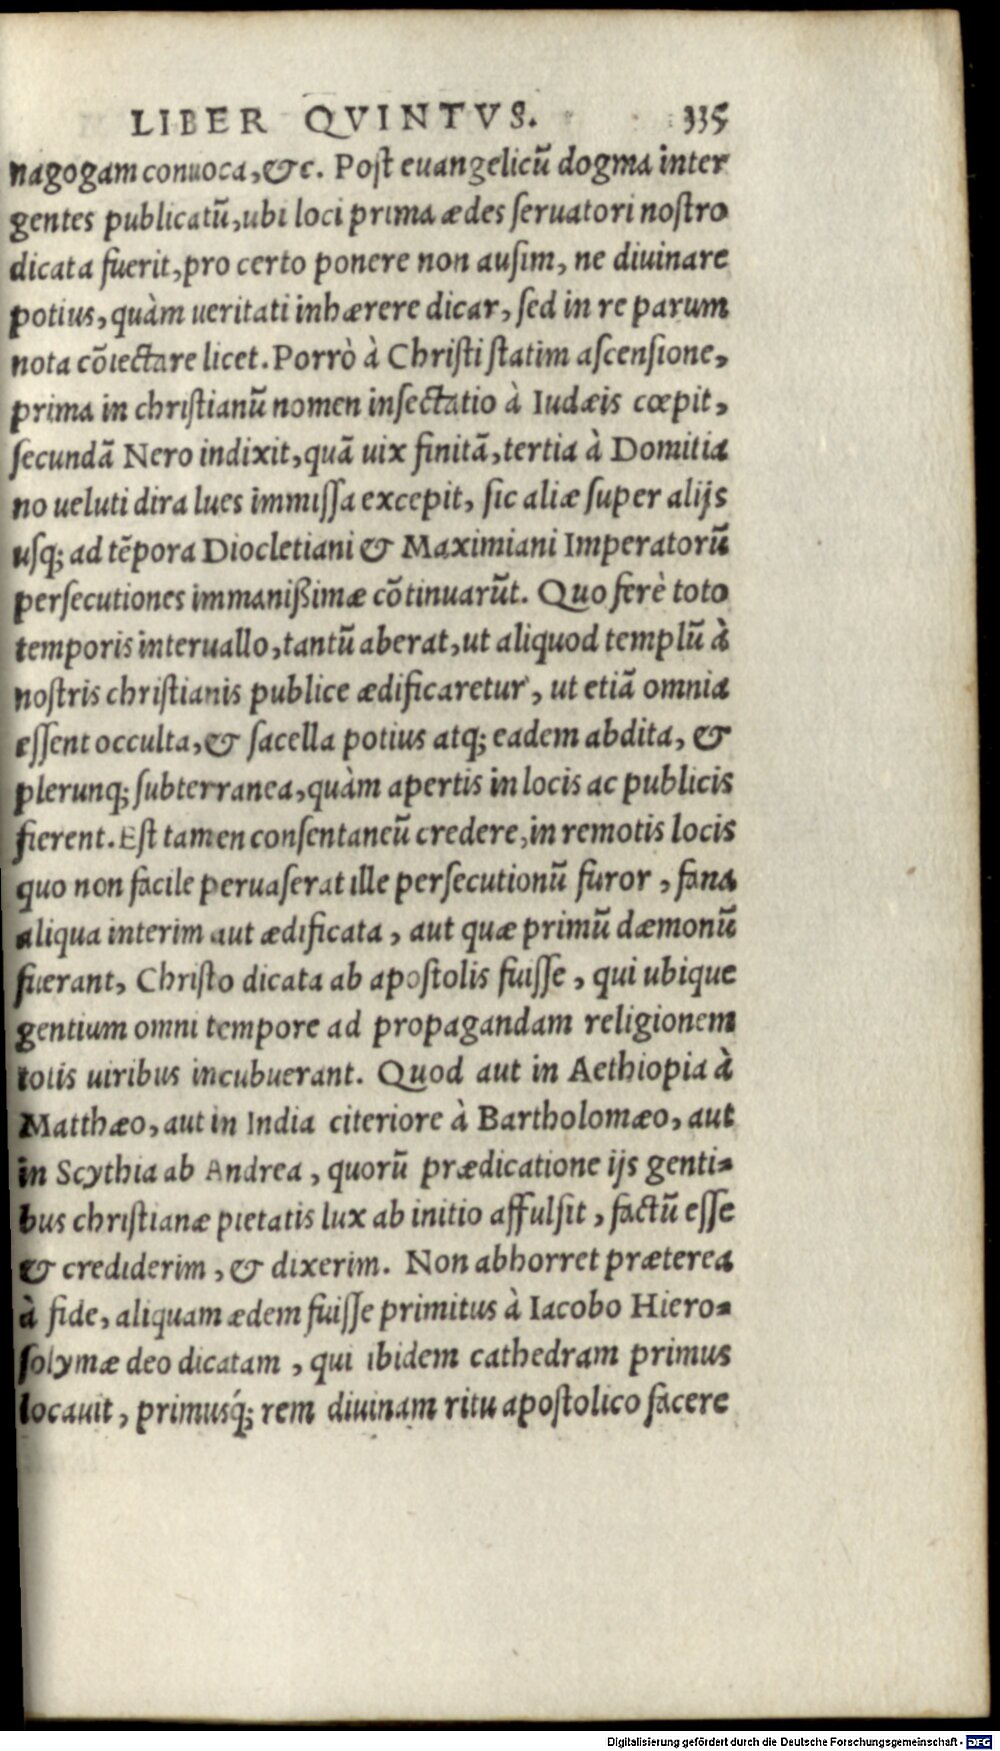 LIBER QVINTVS. 335
nagogam conuoca, &c. Post euangelicũ dogma inter
gentes publicatũ, ubi loci prima ædes seruatori nostro
dicata fuerit, pro certo ponere non ausim, ne diuinare
potius, quàm ueritati inhærere dicar, sed in re parum
nota cõiectare licet. Porrò à Christi statim ascensione,
prima in christianũ nomen insectatio à Iudæis cœpit,
secundã Nero indixit, quã uix finitã, tertia à Domitia
no ueluti dira lues immissa excepit, sic aliæ super alijs
usq; ad tẽpora Diocletiani & Maximiani Imperatorũ
persecutiones immanißimæ cõtinuarũt. Quo ferè toto
temporis interuallo, tantũ aberat, ut aliquod templũ à
nostris christianis publice ædificaretur, ut etiã omnia
essent occulta, & sacella potius atq; eadem abdita, &
plerunq; subterranea, quàm apertis in locis ac publicis
fierent. Est tamen consentaneũ credere, in remotis locis
quo non facile peruaserat ille persecutionũ furor, fana
aliqua interim aut ædificata, aut quæ primũ dæmonũ
fuerant, Christo dicata ab apostolis fuisse, qui ubique
gentium omni tempore ad propagandam religionem
totis uiribus incubuerant. Quod aut in Aethiopia à
Matthæo, aut in India citeriore à Bartholomæo, aut
in Scythia ab Andrea, quorũ prædicatione ijs genti-
bus christianæ pietatis lux ab initio affulsit, factũ esse
& crediderim, & dixerim. Non abhorret præterea
à fide, aliquam ædem fuisse primitus à Iacobo Hiero-
solymæ deo dicatam, qui ibidem cathedram primus
locauit, primusq́; rem diuinam ritu apostolico facere
Digitalisierung gefördert durch die Deutsche Forschungsgemeinschaft - DFG